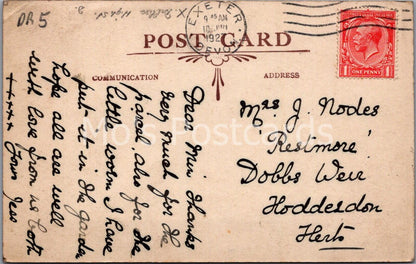 DR 5
EXETER
9 45 AM
192
DEVON
POST CARD
COMMUNICATION
ADDRESS
1 ONE PENNY 1
Dear Min Thanks
very much for the
parcel also for the
little I have
put it in the garden
hope all are well
with love from us both
++++ Jess
Mrs J. Nodes
"Restmore"
Dobbs Weir
Hoddesdon
Herts
Postcards